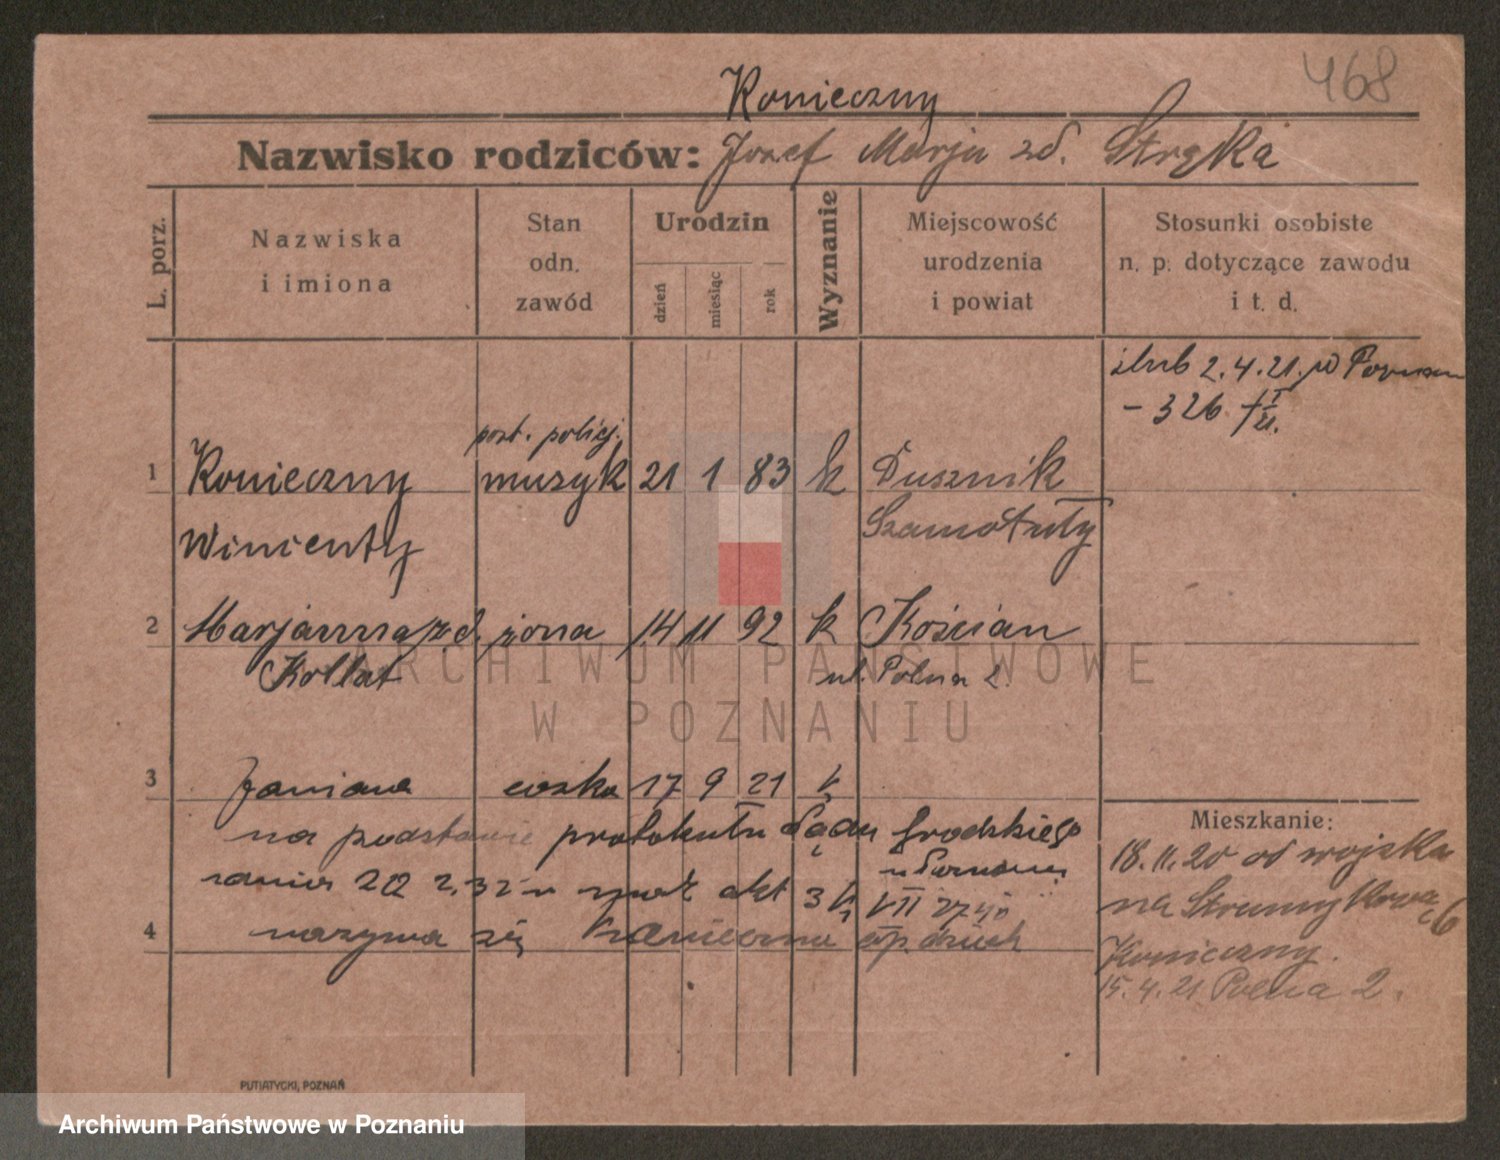 468
Konieczny
Nazwisko rodziców: Jozef Marja zd. Stręka
L. porz.
Nazwiska
i imiona
Stan
odn.
zawód
Urodzin
dzień
miesiąc
rok
Wyznanie
Miejscowość
urodzenia
i powiat
Stosunki osobiste
n. p. dotyczące zawodu
i t. d.
ślub 2.4.21. w Poznan
- 326
post. policj.
1 Konieczny muzyk 21 1 83 k Dusznik
Wincenty Szamotuły
2 Marjanna zd. żona 14 11 92 k Kościan
Kollat ul. Polna 2.
ARCHIWUM PAŃSTWOWE
W POZNANIU
3 Janiana corka 17 9 21 k
na podstawie protokułu Sądu Grodzkiego
w Poznaniu
akt 3 VII
4 nazywa się
Mieszkanie:
18.11.20 od wojska
na Strumykowa 6
Konieczny.
15.4.21 Polna 2.
PUTIATYCKI, POZNAŃ
Archiwum Państwowe w Poznaniu